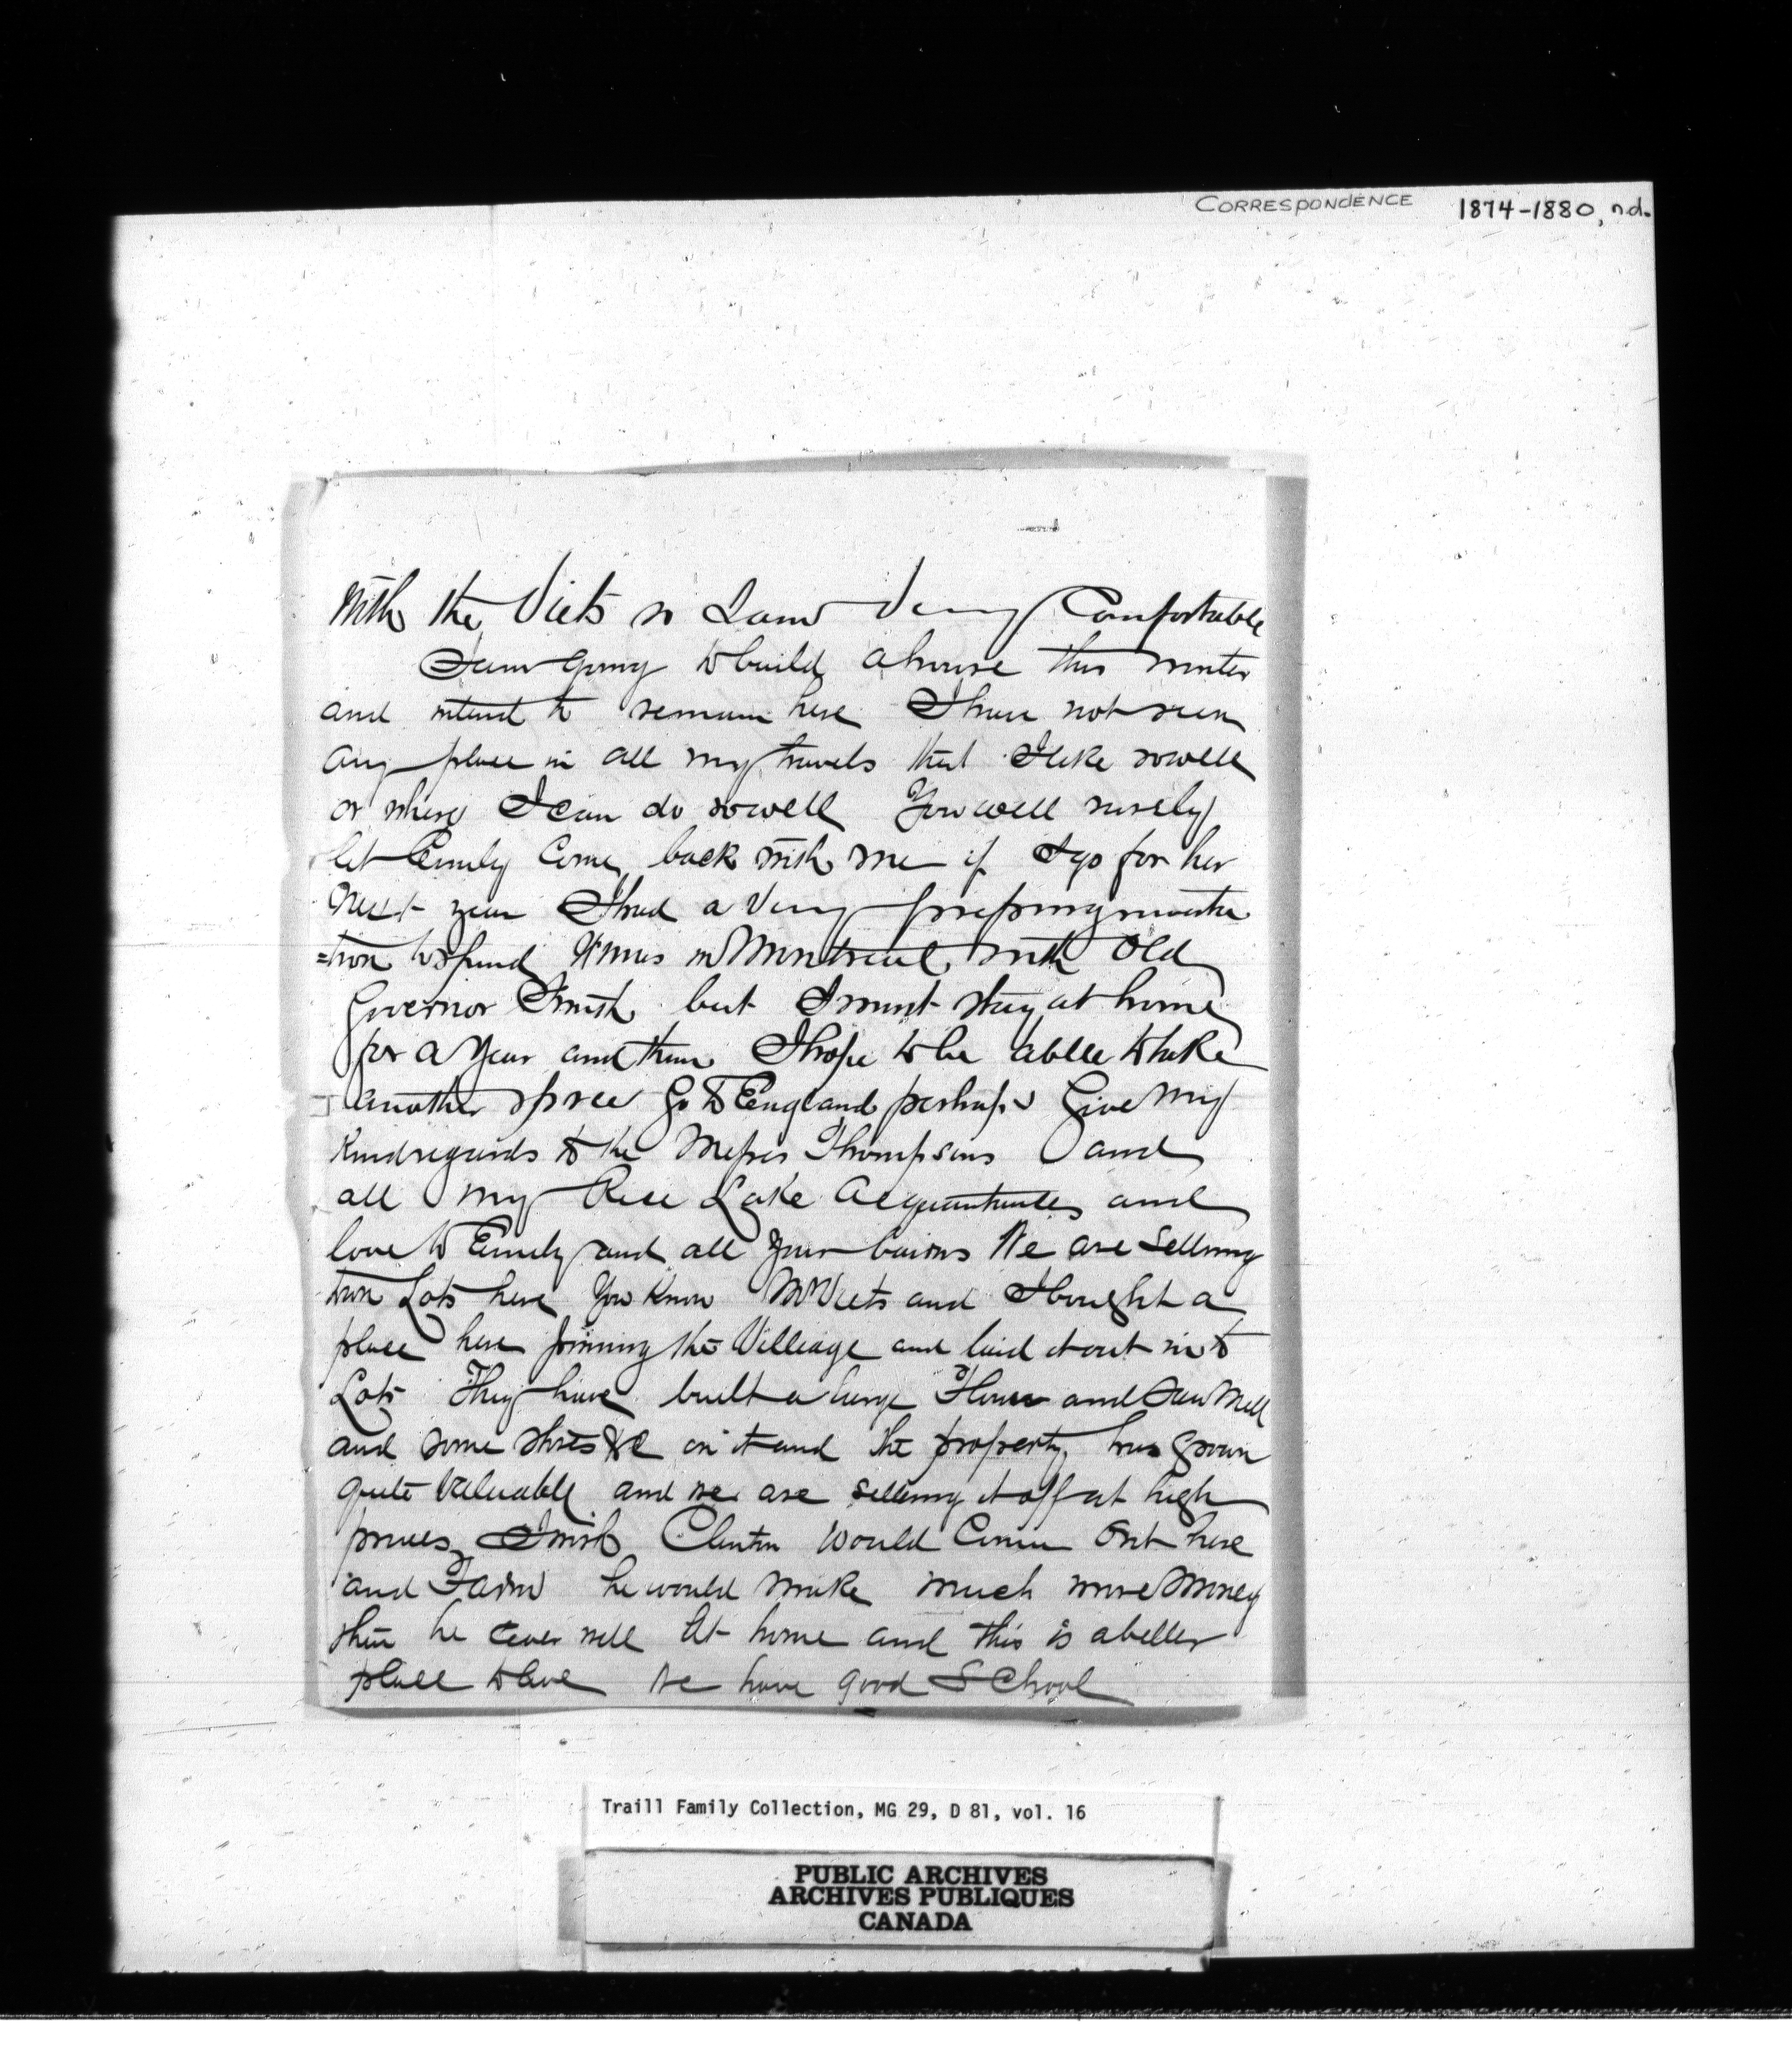 CORRESPONDENCE 1874-1880, n.d.
With the Viets so I am Very Comfortable
I am going to build a house this winter
and intend to remain here I have not seen
any place in all my travels that I like so well
or where I can do so well You well surely
let Emily Come back with me if I go for her
Next year I had a Very pressing invita
=tion to spend Xmas in Montreal with Old
Governor Smith but I must stay at home
for a Year and then I hope to be ablle to take
another spree Go to England perhaps Give my
Kind regards to the Messrs Thompsons and
all my Rice Lake Acquantances and
love to Emily and all your bairns We are Selling
town Lots here You Know Mr Viets and I bought a
place here joining the Villiage and laid it out into
Lots They have built a large Flour and Saw Mill
and some stores &c on it and the property has grown
quite Valuable and we are selling it off at high
prices I wish Clinton Would Come Out here
and Farm he would make much more Money
then he ever will At home and this is a better
place to live We have good School
Traill Family Collection, MG 29, D 81, vol. 16
PUBLIC ARCHIVES
ARCHIVES PUBLIQUES
CANADA